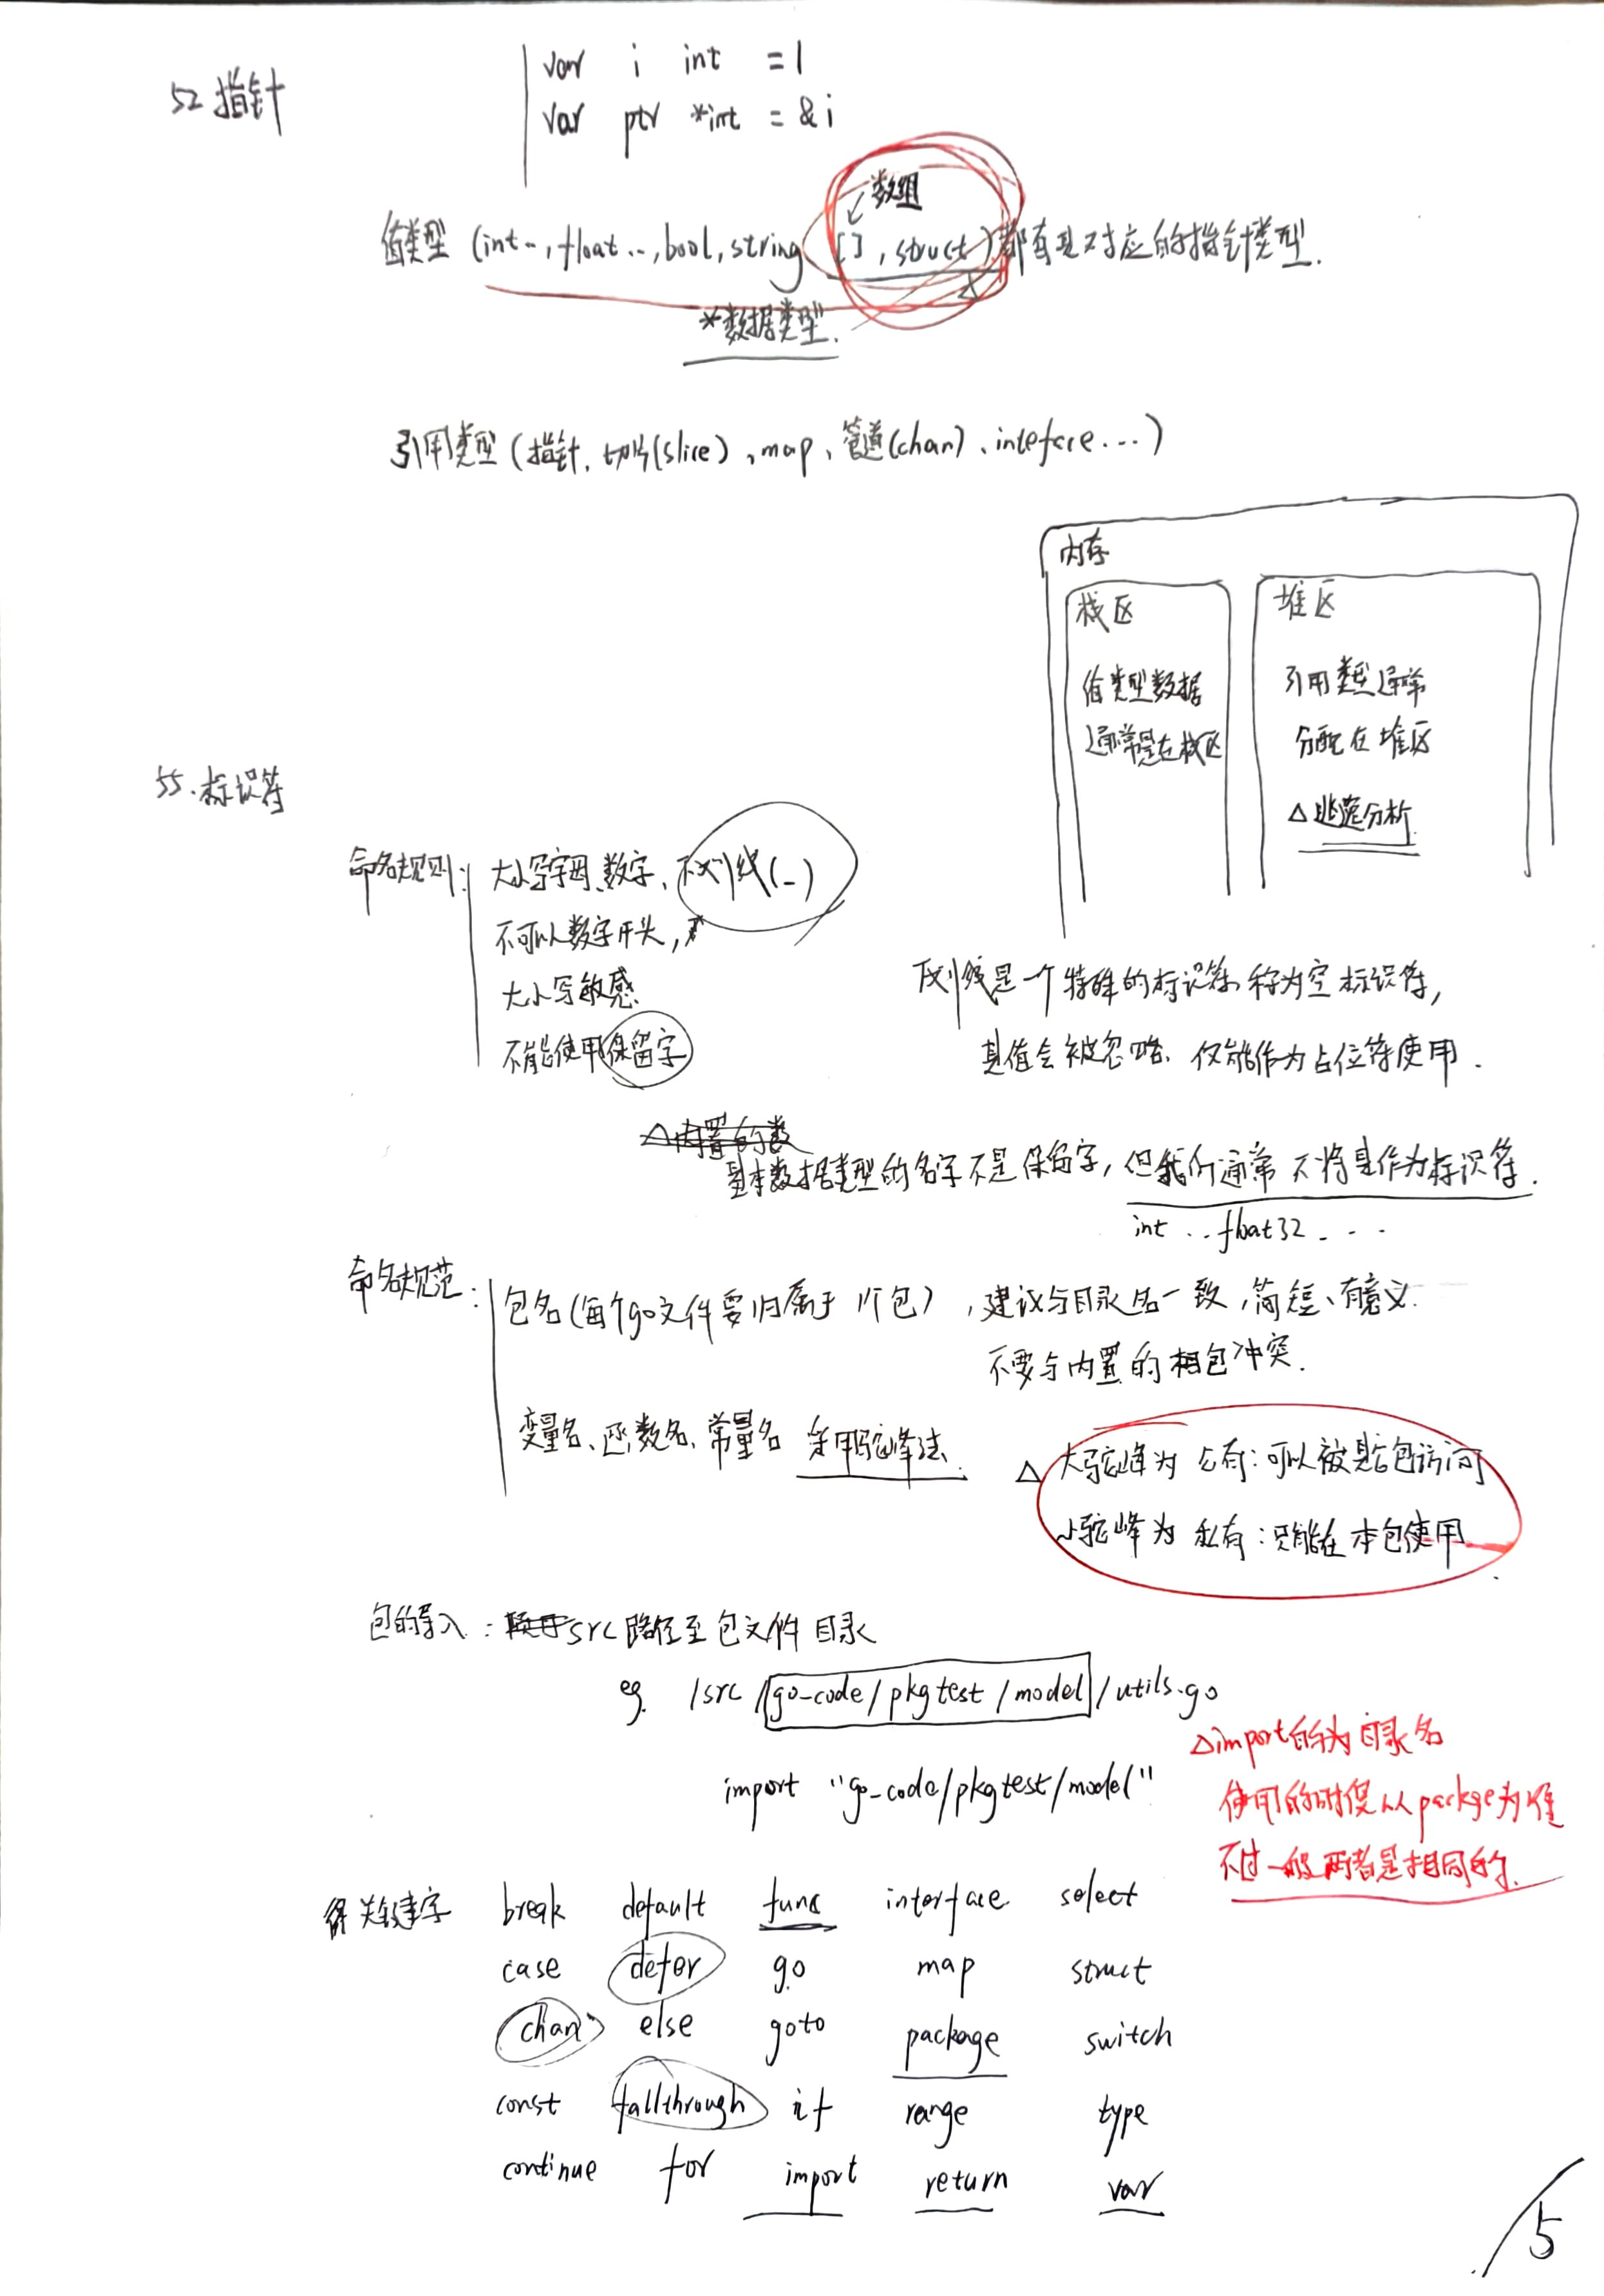 52 指针
var i int = 1
var ptr *int = &i
数组
值类型 (int.., float..., bool, string, [], struct) 都有其对应的指针类型.
*数据类型.
引用类型 (指针, 切片(slice), map, 管道(chan), inteface...)
内存
栈区
值类型数据
通常是在栈区
堆区
引用类型通常
分配在堆区
△逃逸分析
55. 标识符
命名规则: 大小写字母、数字、下划线(_)
不可以数字开头,
大小写敏感
不能使用保留字
下划线是一个特殊的标识符, 称为空标识符,
其值会被忽略, 仅能作为占位符使用.
△内置的数
基本数据类型的名字不是保留字, 但我们通常不将其作为标识符.
int .. float32 ...
命名规范: 包名(每个go文件要归属于1个包), 建议与目录名一致, 简短、有意义.
不要与内置的包冲突.
变量名、函数名、常量名 采用驼峰法.
△ 大驼峰为 公有: 可以被其它包访问
小驼峰为 私有: 只能在本包使用
包的导入: src路径至包文件目录
eg. /src/go-code/pkgtest/model/utils.go
import "go-code/pkgtest/model"
△import的为目录名
使用的时候以package为准
不过一般两者是相同的.
关键字 break default func interface select
case defer go map struct
chan else goto package switch
const fallthrough if range type
continue for import return var
5